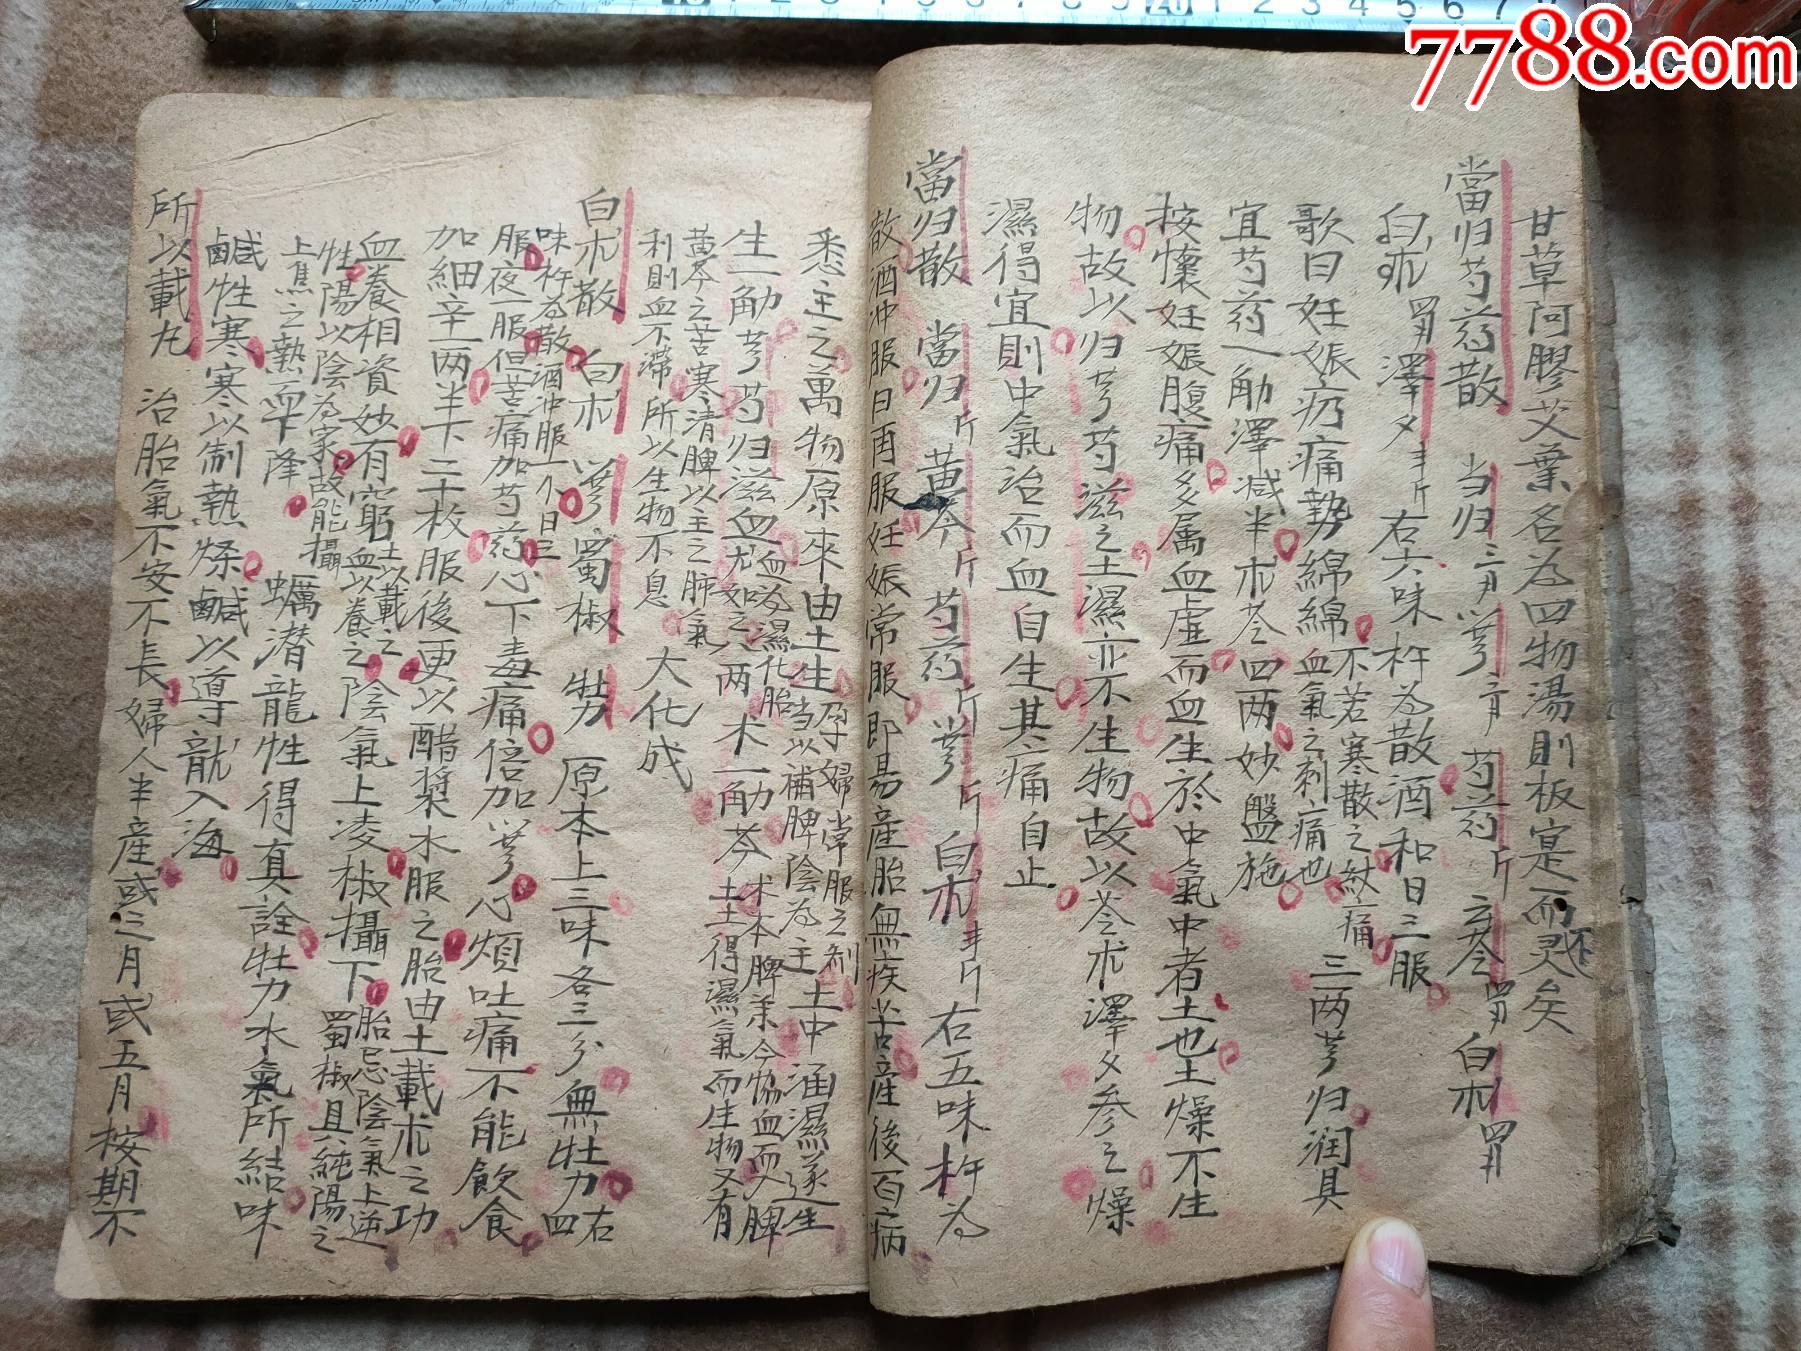 7788.com
甘草阿膠艾葉名为四物湯則板寔而不灵矣
當归芍药散 当归三刃 芎二刃 芍药斤 云苓四刃 白术四刃
白术四刃 澤夕半斤 右六味杵为散酒和日三服
歌曰妊娠㽱痛勢綿綿不若寒散之紋痛血氣之刺痛也三两芎归润具
宜芍药一觔澤减半术苓四两妙盤施
按懷妊娠腹痛多属血虚而血生於中氣中者土也土燥不生
物故以归芎芍滋之土濕亦不生物故以苓术澤夕参之燥
濕得宜則中氣治而血自生其痛自止
當归散 當归斤 黄芩斤 芍药斤 芎斤 白术半斤 右五味杵为
散酒冲服日再服妊娠常服即易產胎無疾苦產後百病
悉主之萬物原來由土生孕婦常服之剂土中涵濕遂生
生一觔芎芍归滋血血为濕化胎尤如之八两术一觔芩
當以補脾陰为主术本脾汞今協血而又脾土土得濕氣而生物又有
黄芩之苦寒清脾以主之肺氣利則血不滯所以生物不息大化成
白术散 白术 芎 蜀椒 牡力 原本上三味各三分無牡力右四
味杵为散酒冲服一个日三服夜一服但苦痛加芍药心下毒痛倍加芎心煩吐痛不能飲食
加細辛一两半下二十枚服後更以醋漿水服之胎由土載术之功
血養相資妙有窮土以載之血以養之陰氣上凌椒攝下胎忌陰氣上逆
蜀椒且純陽之性陽以陰为家故能攝上焦之熱而下降蠣潜龍性得真詮牡力水氣所結味
鹹性寒寒以制熱燥鹹以導龍入海
所以載丸 治胎氣不安不長婦人半產或三月或五月按期不